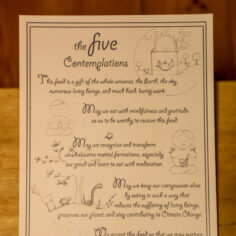 the five
Contemplations
This food is a gift of the whole universe, the Earth, the sky,
numerous living beings, and much hard, loving work.
May we eat with mindfulness and gratitude
so as to be worthy to receive this food.
May we recognize and transform
unwholesome mental formations, especially
our greed and learn to eat with moderation.
May we keep our compassion alive
by eating in such a way that
reduces the suffering of living beings,
preserves our planet, and stop contributing to Climate Change.
We accept this food so that we may nurture